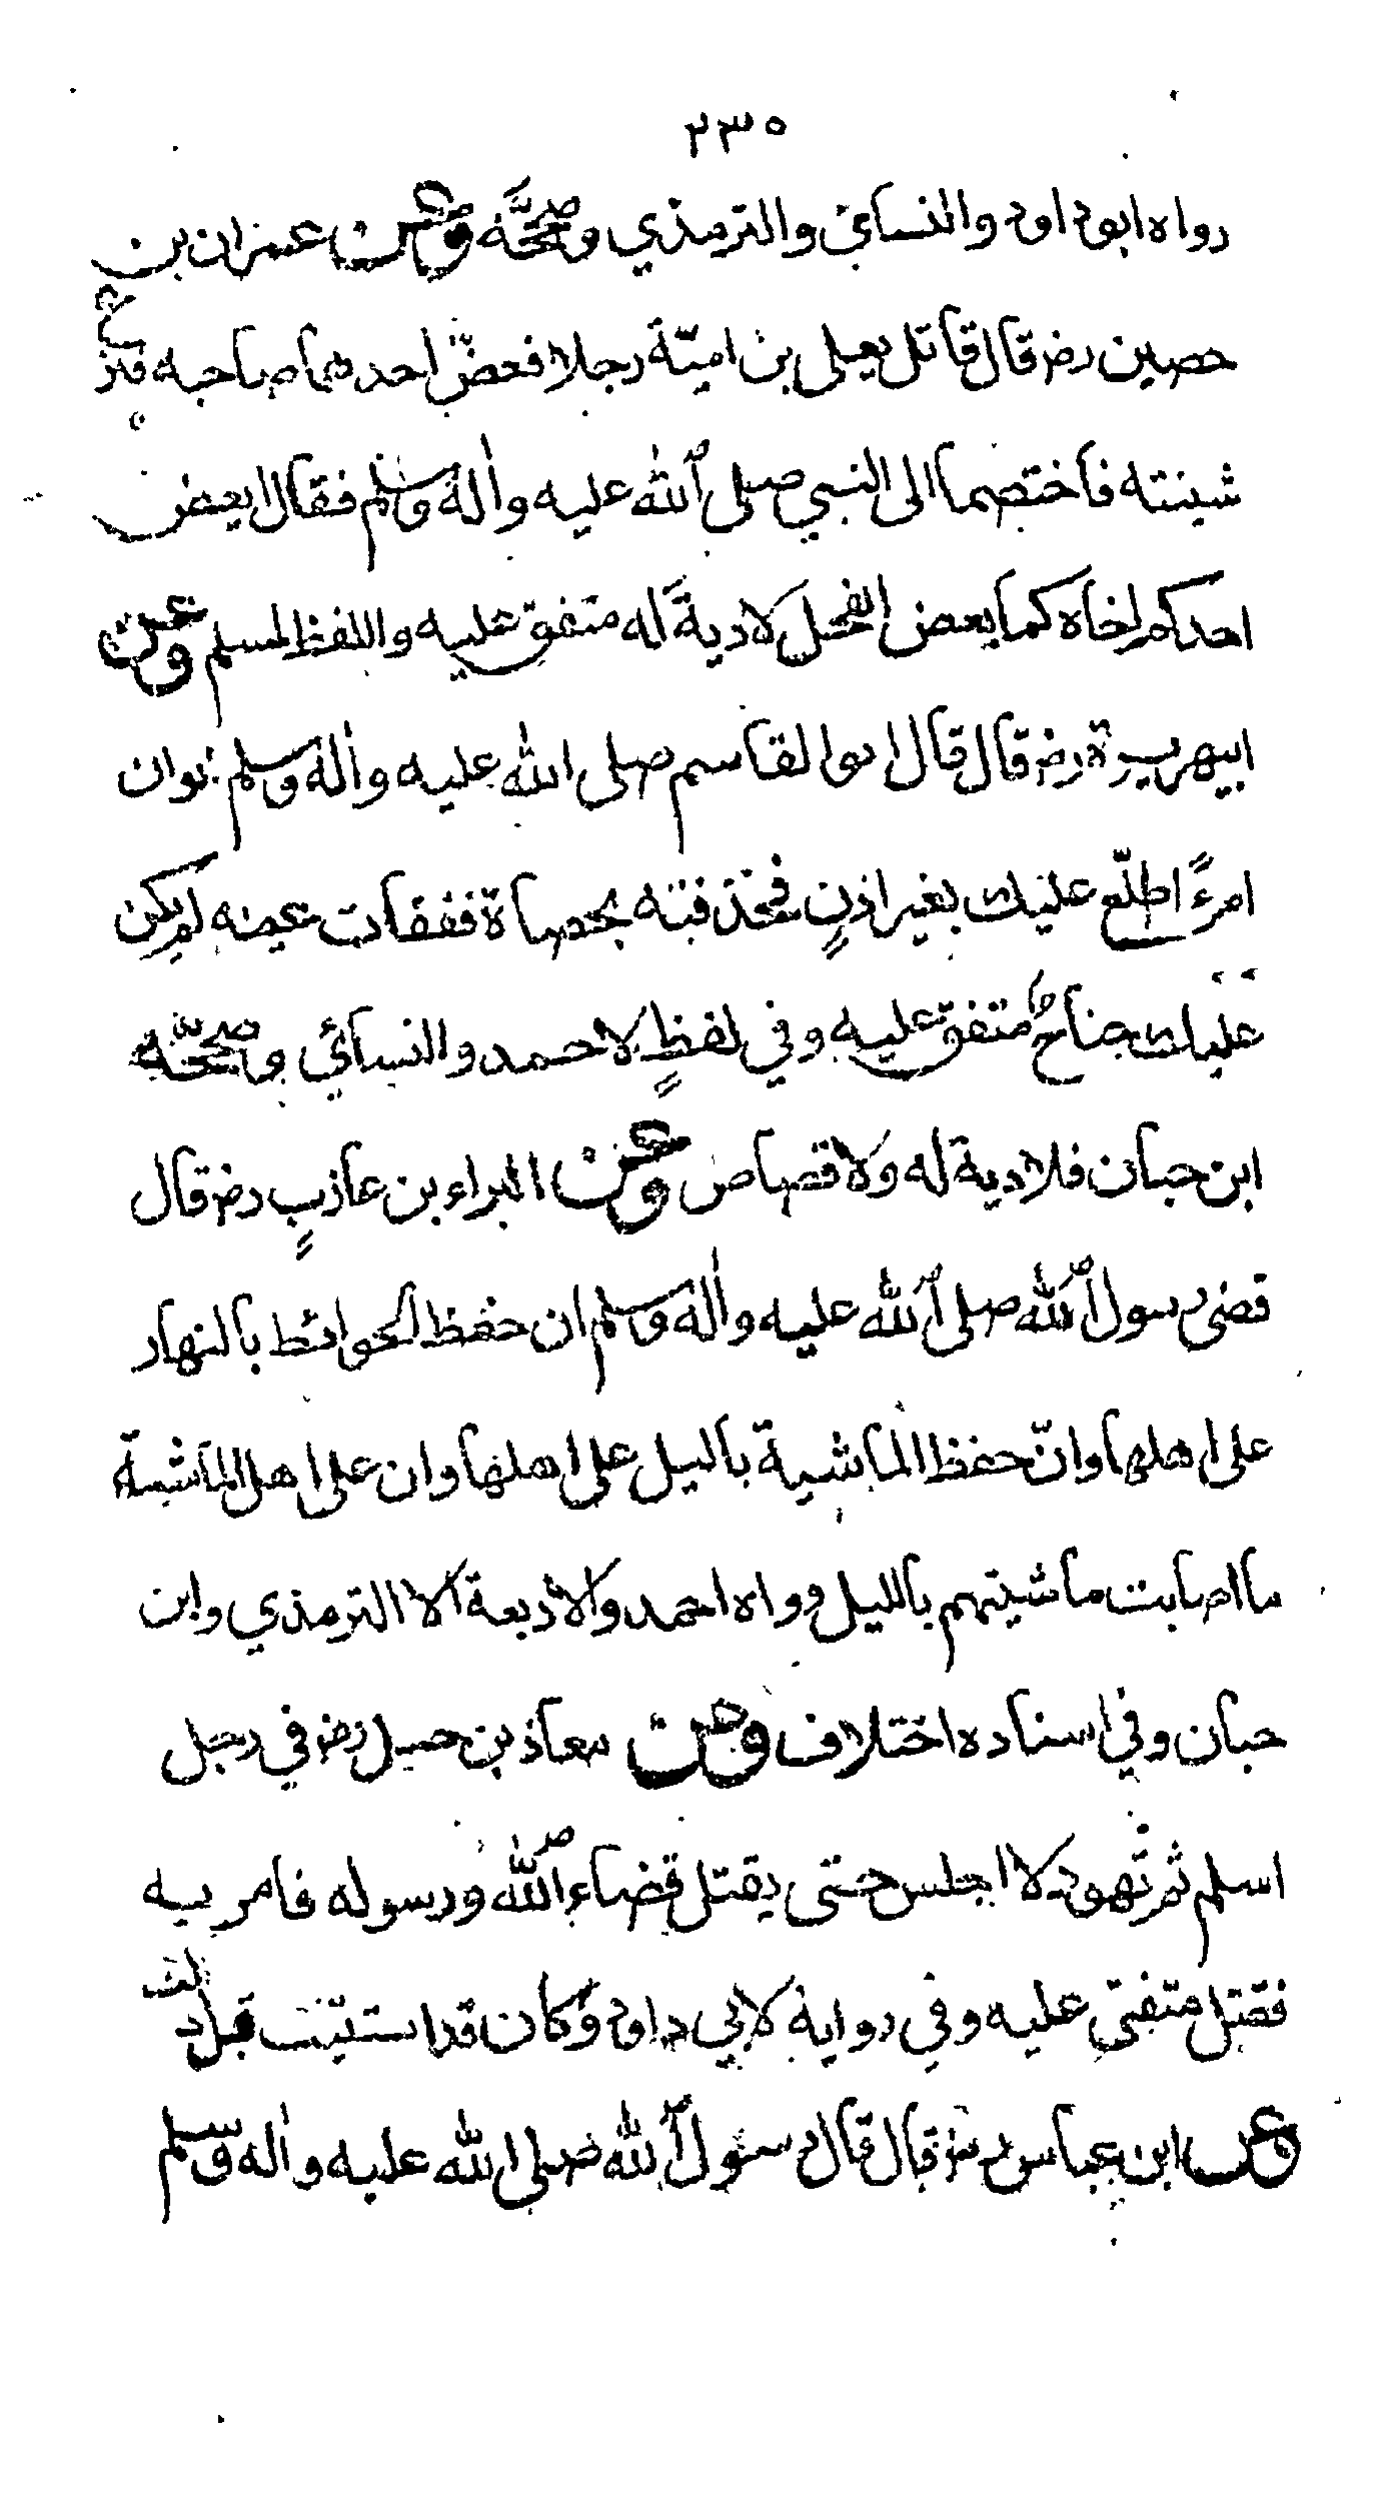 ٢٣٥
رواه ابوداود والنسائي والترمذي وصححّه وعن عمران بن
حصين رض قال قاتل يعلى بن اميّة رجلا فعضّ احدهما صاحبه فنزع
ثنيته فاختصما الى النبي صلى الله عليه واله وسلم فقال ايعض
احدكم اخاه كما يعض الفحل لا ديةَ له متفق عليه واللفظ لمسلم وعن
ابيهريرة رض قال قال ابوالقاسم صلى الله عليه واله وسلم لوان
امرءً اطلّع عليك بغير اذنٍ فخذفته بحصاة ففقات عينه لم يكن
عليك جناحٌ متفق عليه وفي لفظٍ لاحمد والنسائي وصححّه
ابن حبان فلا دية له ولا قصاص وعن البراء بن عازبٍ رض قال
قضى رسول الله صلى الله عليه واله وسلم ان حفظ الحوائط بالنهار
على اهلها وانّ حفظ الماشية باليل على اهلها وان على اهل الماشية
ما اصابت ماشيتهم بالليل رواه احمد والاربعة الا الترمذي وابن
حبان وفي اسناده اختلاف وعن معاذ بن جبل رض في رجل
اسلم ثم تهود لا اجلس حتى يقتل قضاء الله ورسوله فامر به
فقتل متفق عليه وفي رواية لابي داود وكان قد استتيب قبل ذلك
وعن ابن عباس رض قال قال رسول الله صلى الله عليه واله وسلم